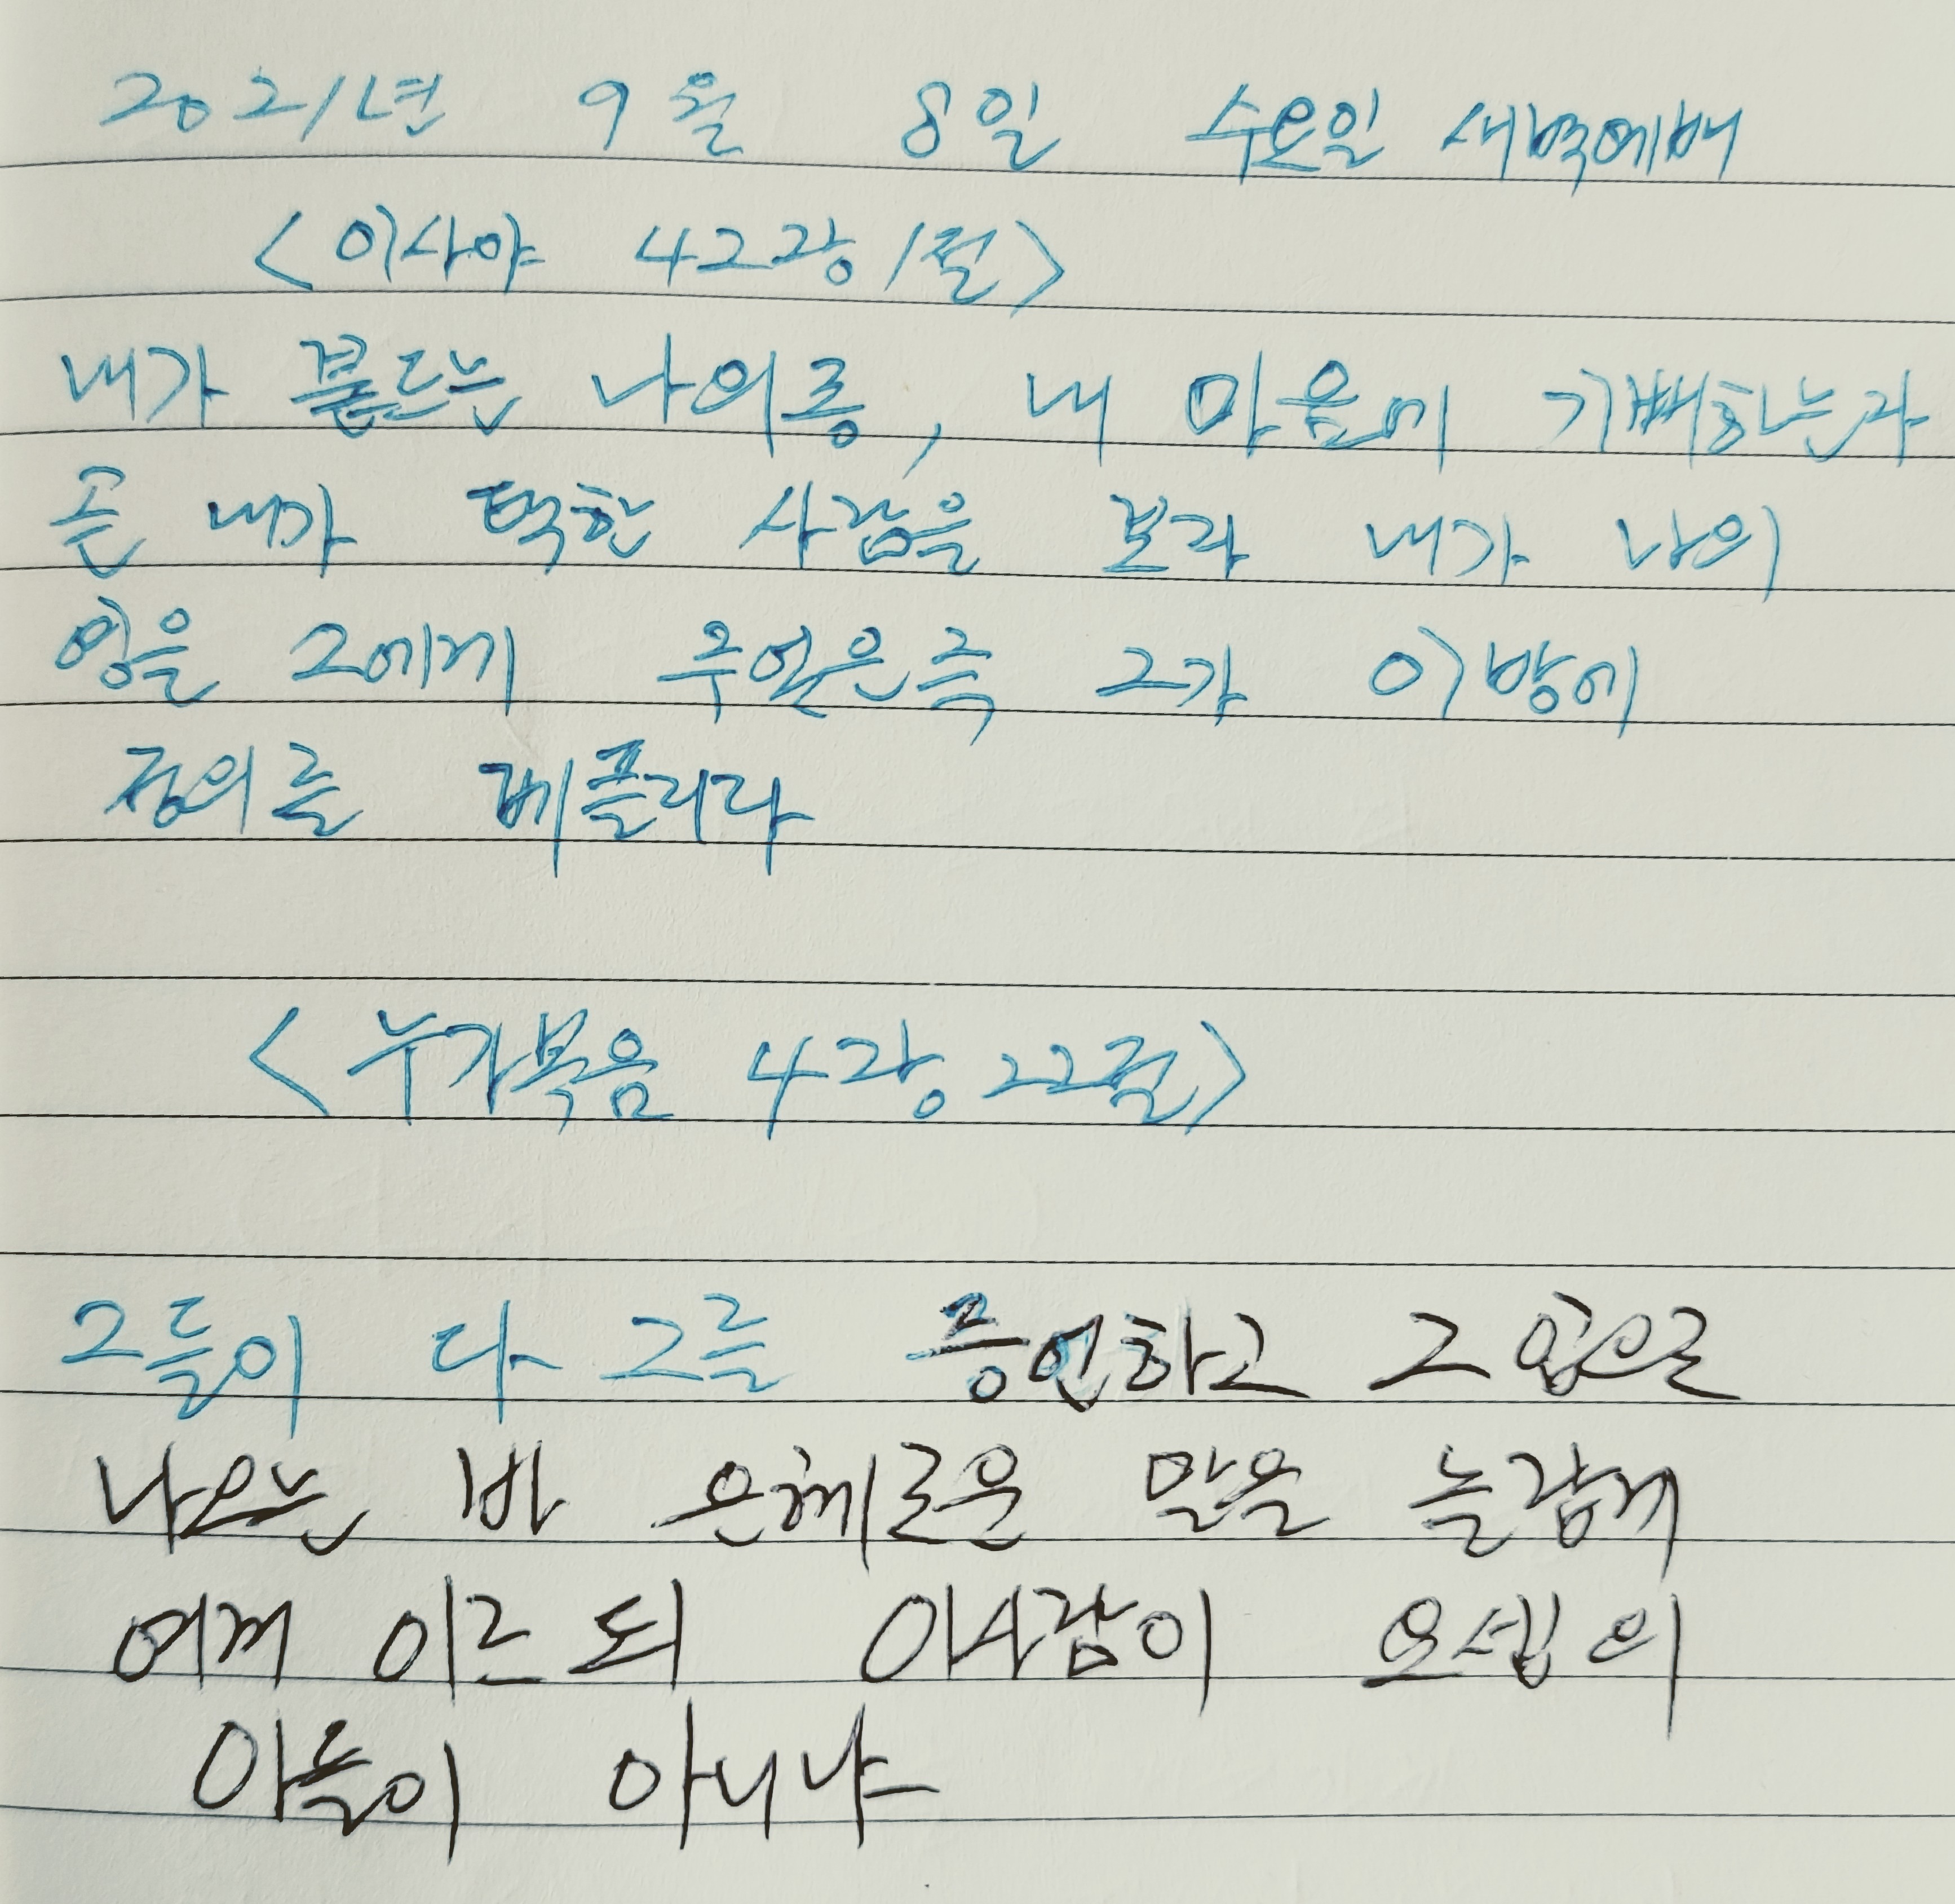 2021년 9월 8일 수요일 새벽예배
<이사야 42장 1절>
내가 붙드는 나의 종, 내 마음에 기뻐하는 자
곧 내가 택한 사람을 보라 내가 나의
영을 그에게 주었은즉 그가 이방에
정의를 베풀리라
<누가복음 4장 22절>
그들이 다 그를 증언하고 그 입으로
나오는 바 은혜로운 말을 놀랍게
여겨 이르되 이 사람이 요셉의
아들이 아니냐